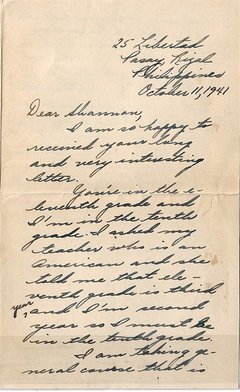 25 Libertad
Pasay, Rizal
Philippines
October 11, 1941
Dear Shannon,
I am so happy to
received your long
and very interesting
letter.
You're in the e-
leventh grade and
I'm in the tenth
grade. I asked my
teacher who is an
American and she
told me that ele-
venth grade is third
year, and I'm second
year so I must be
in the tenth grade.
I am taking ge-
neral course that is